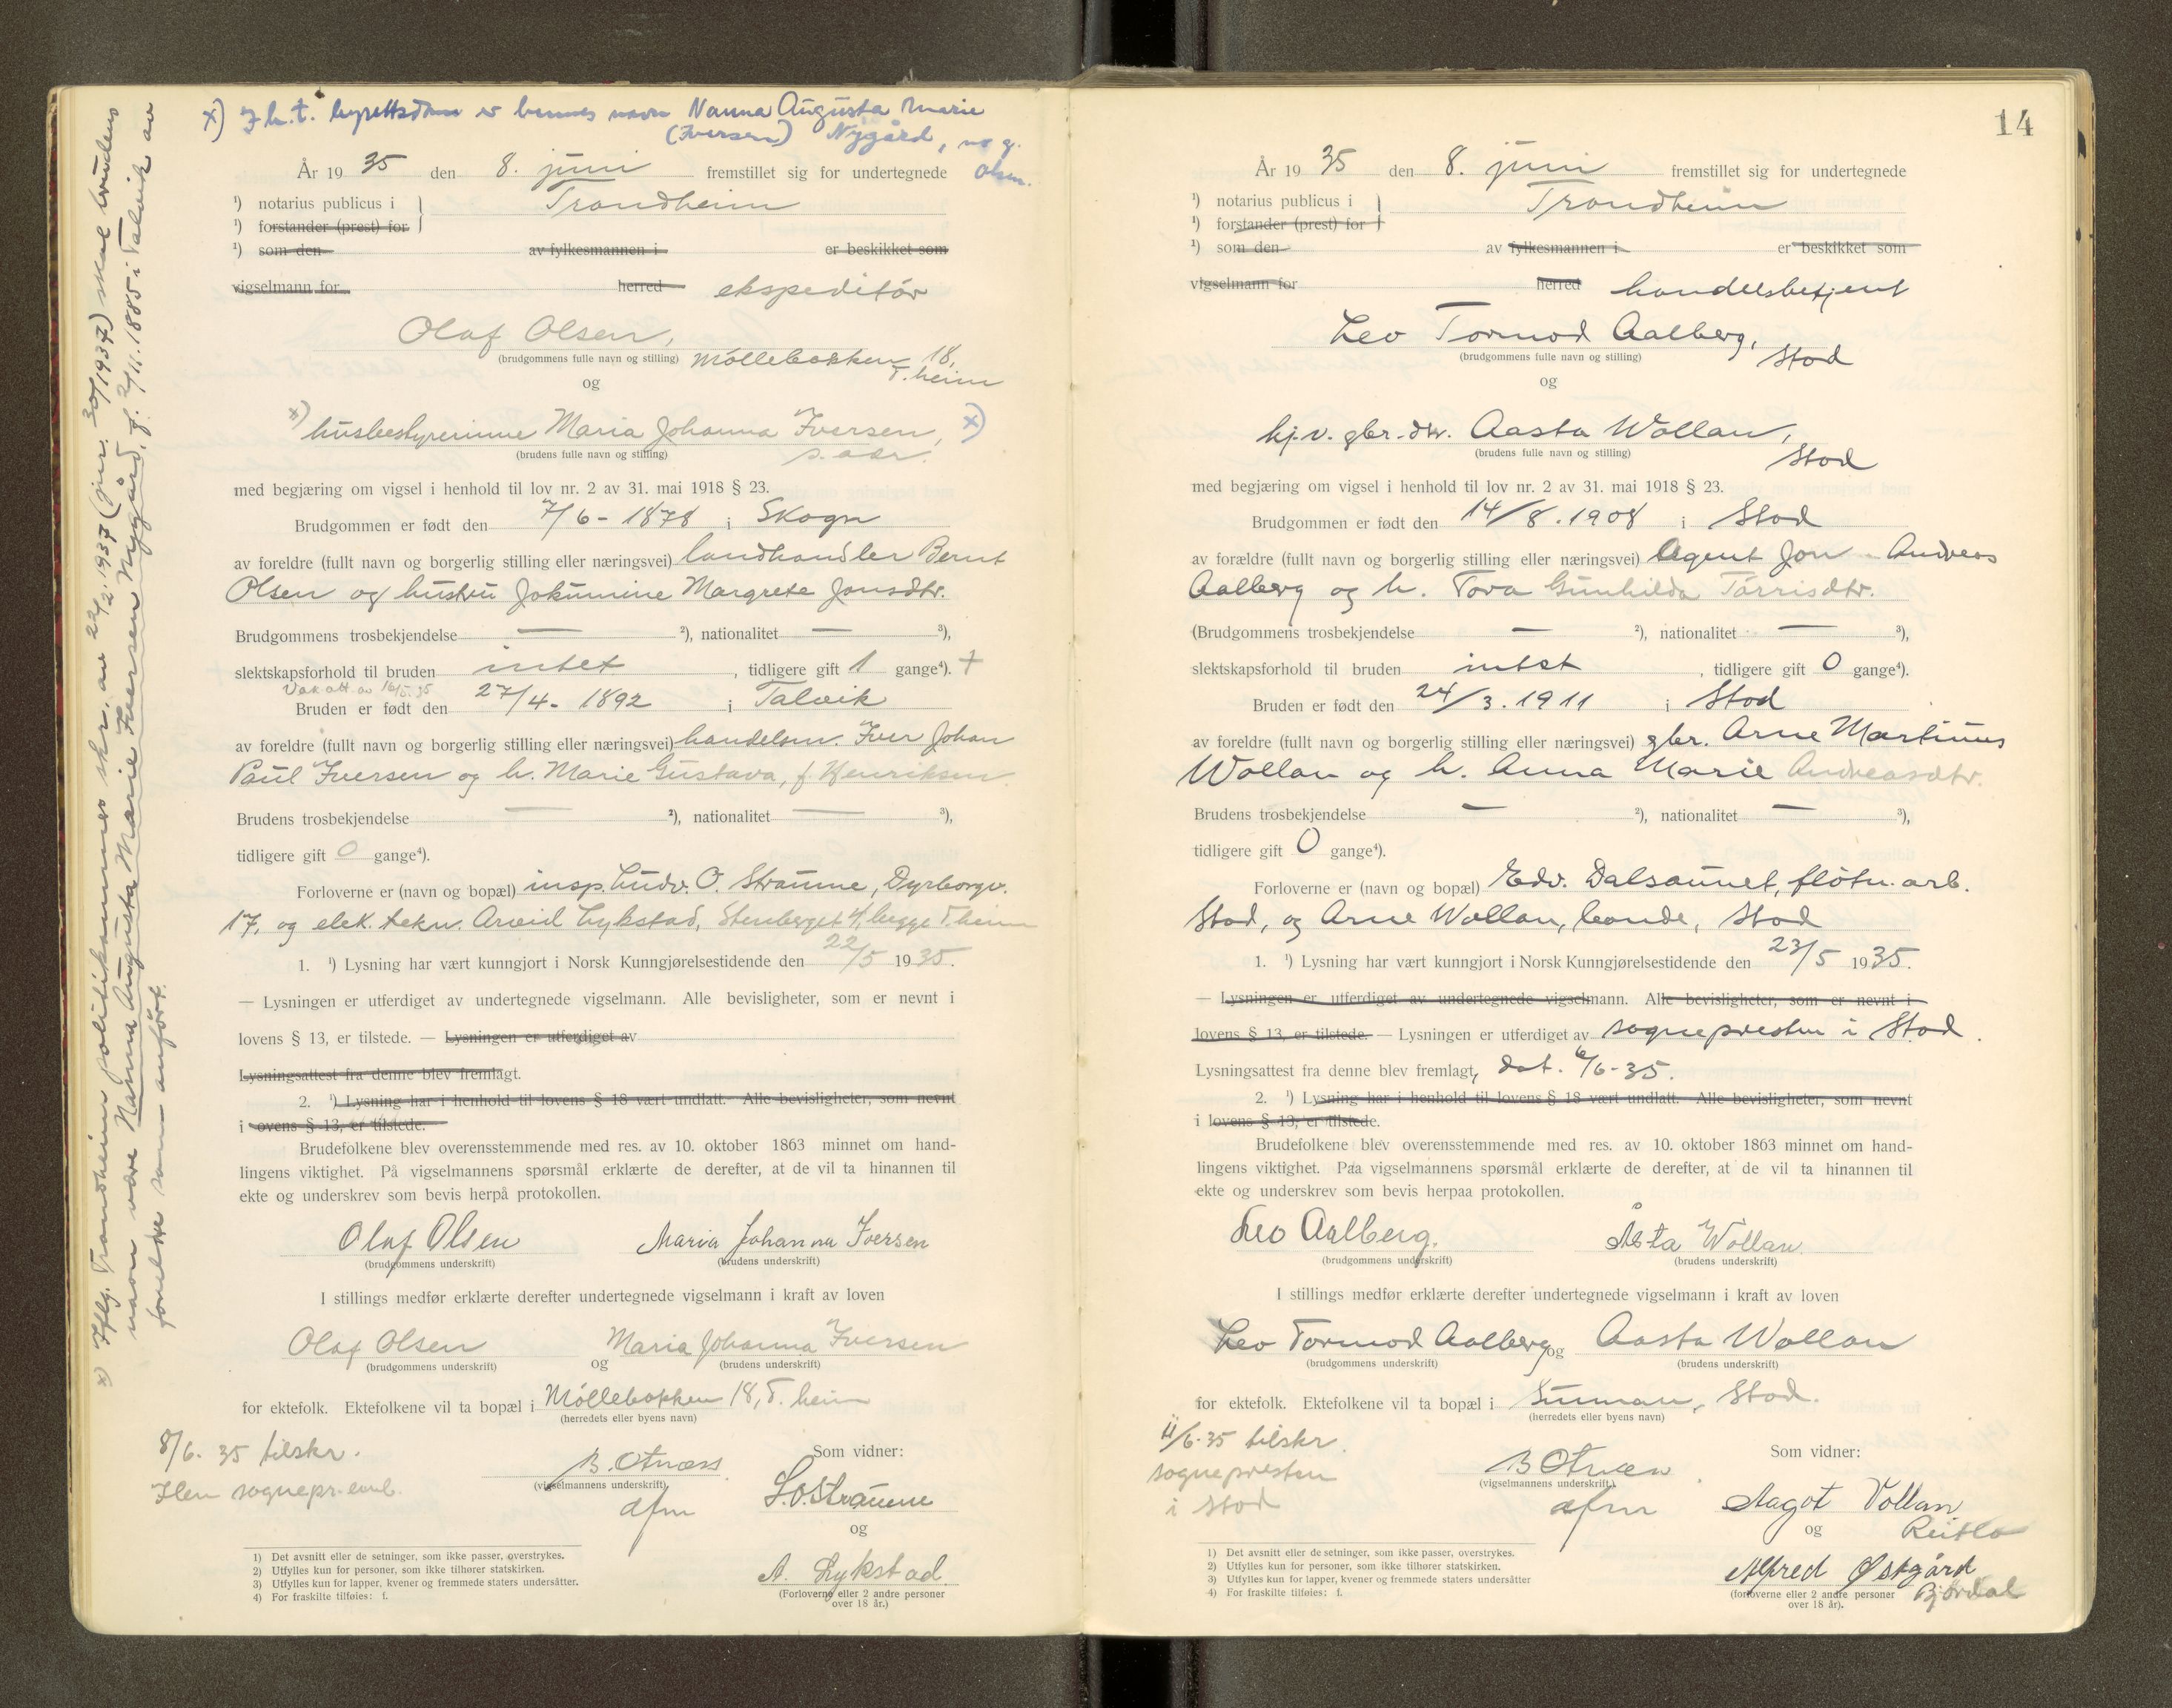 x) I h.t. byrettsdom er hennes navn Nanna Augusta Marie
(Iversen) Nygård, nå g.
Olsen.
År 19 35 den 8. juni fremstillet sig for undertegnede
¹) notarius publicus i } Trondheim
¹) forstander (prest) for
¹) som den av fylkesmannen i er beskikket som
vigselmann for herred ekspeditör
Olaf Olsen,
(brudgommens fulle navn og stilling) Möllebakken 18,
T.heim
og
x) husbestyrerinne Maria Johanna Iversen, x)
(brudens fulle navn og stilling) s. adr.
med begjæring om vigsel i henhold til lov nr. 2 av 31. mai 1918 § 23.
Brudgommen er født den 7/6 - 1878 i Skogn
av foreldre (fullt navn og borgerlig stilling eller næringsvei) landhandler Bernt
Olsen og hustru Jokumine Margrete Jonsdtr.
Brudgommens trosbekjendelse — ²), nationalitet — ³),
slektskapsforhold til bruden intet , tidligere gift 1 gange⁴). +
Vak.att. av 16/5.35
Bruden er født den 27/4 - 1892 i Talvik
av foreldre (fullt navn og borgerlig stilling eller næringsvei) handelsm. Iver Johan
Paul Iversen og h. Marie Gustava, f. Henriksen
Brudens trosbekjendelse — ²), nationalitet — ³),
tidligere gift 0 gange⁴).
Forloverne er (navn og bopæl) insp. Ludv. O. Straume, Dyrborgv.
17, og elek. tekn. Arvid Lykstad, Stenberget 4, begge T.heim
1. ¹) Lysning har vært kunngjort i Norsk Kunngjørelsestidende den 22/5 1935.
— Lysningen er utferdiget av undertegnede vigselmann. Alle bevisligheter, som er nevnt i
lovens § 13, er tilstede. — Lysningen er utferdiget av
Lysningsattest fra denne blev fremlagt.
2. ¹) Lysning har i henhold til lovens § 18 vært undlatt. Alle bevisligheter, som nevnt
i lovens § 13, er tilstede.
Brudefolkene blev overensstemmende med res. av 10. oktober 1863 minnet om hand-
lingens viktighet. På vigselmannens spørsmål erklærte de derefter, at de vil ta hinannen til
ekte og underskrev som bevis herpå protokollen.
Olaf Olsen Maria Johanna Iversen
(brudgommens underskrift) (brudens underskrift)
I stillings medfør erklærte derefter undertegnede vigselmann i kraft av loven
Olaf Olsen og Maria Johanna Iversen
(brudgommens underskrift) (brudens underskrift)
for ektefolk. Ektefolkene vil ta bopæl i Möllebakken 18, T.heim
(herredets eller byens navn)
8/6. 35 tilskr.
Ilen sognepr.emb.
B. Otnæss
(vigselmannens underskrift)
afm
Som vidner:
L.O. Straume
og
A. Lykstad
(Forloverne eller 2 andre personer
over 18 år.)
1) Det avsnitt eller de setninger, som ikke passer, overstrykes.
2) Utfylles kun for personer, som ikke tilhører statskirken.
3) Utfylles kun for lapper, kvener og fremmede staters undersåtter.
4) For fraskilte tilføies: f.
x) Iflg. Trondheims politikammers skr. av 22/2.1937 (jnr. 30/1937) skal brudens
navn være Nanna Augusta Marie Iversen Nygård, f. 2/11.1885 i Talvik av
foreldre som anfört.
14
År 19 35 den 8. juni fremstillet sig for undertegnede
¹) notarius publicus i } Trondheim
¹) forstander (prest) for
¹) som den av fylkesmannen i er beskikket som
vigselmann for herred handelsbetjent
Leo Tormod Aalberg,
(brudgommens fulle navn og stilling) Stod
og
hj.v. gbr.dtr. Aasta Wollan,
(brudens fulle navn og stilling) Stod
med begjæring om vigsel i henhold til lov nr. 2 av 31. mai 1918 § 23.
Brudgommen er født den 14/8. 1908 i Stod
av forældre (fullt navn og borgerlig stilling eller næringsvei) Agent Jon Andreas
Aalberg og h. Tora Gunhilda Tørrisdtr.
(Brudgommens trosbekjendelse — ²), nationalitet — ³),
slektskapsforhold til bruden intet , tidligere gift 0 gange⁴).
Bruden er født den 24/3. 1911 i Stod
av foreldre (fullt navn og borgerlig stilling eller næringsvei) gbr. Arne Martinus
Wollan og h. Anna Marie Andreasdtr.
Brudens trosbekjendelse — ²), nationalitet — ³),
tidligere gift 0 gange⁴).
Forloverne er (navn og bopæl) Edv. Dalsaunet, flötn. arb.
Stod, og Arne Wollan, bonde, Stod
1. ¹) Lysning har vært kunngjort i Norsk Kunngjørelsestidende den 23/5 1935.
— Lysningen er utferdiget av undertegnede vigselmann. Alle bevisligheter, som er nevnt i
lovens § 13, er tilstede. — Lysningen er utferdiget av sognepresten i Stod.
Lysningsattest fra denne blev fremlagt, dat. 6/6-35.
2. ¹) Lysning har i henhold til lovens § 18 vært undlatt. Alle bevisligheter, som nevnt
i lovens § 13, er tilstede.
Brudefolkene blev overensstemmende med res. av 10. oktober 1863 minnet om hand-
lingens viktighet. Paa vigselmannens spørsmål erklærte de derefter, at de vil ta hinannen til
ekte og underskrev som bevis herpaa protokollen.
Leo Aalberg. Åsta Wollan
(brudgommens underskrift) (brudens underskrift)
I stillings medfør erklærte derefter undertegnede vigselmann i kraft av loven
Leo Tormod Aalberg og Aasta Wollan
(brudgommens underskrift) (brudens underskrift)
for ektefolk. Ektefolkene vil ta bopæl i Sunnan, Stod.
(herredets eller byens navn)
11/6-35 tilskr.
sognepresten
i Stod
B Otnæss
(vigselmannens underskrift.)
afm
Som vidner:
Aagot Vollan
og Reitlo
Alfred Østgård
(forloverne eller 2 andre personer Bjørdal
over 18 år).
1) Det avsnitt eller de setninger, som ikke passer, overstrykes.
2) Utfylles kun for personer, som ikke tilhører statskirken.
3) Utfylles kun for lapper, kvener og fremmede staters undersåtter
4) For fraskilte tilføies: f.